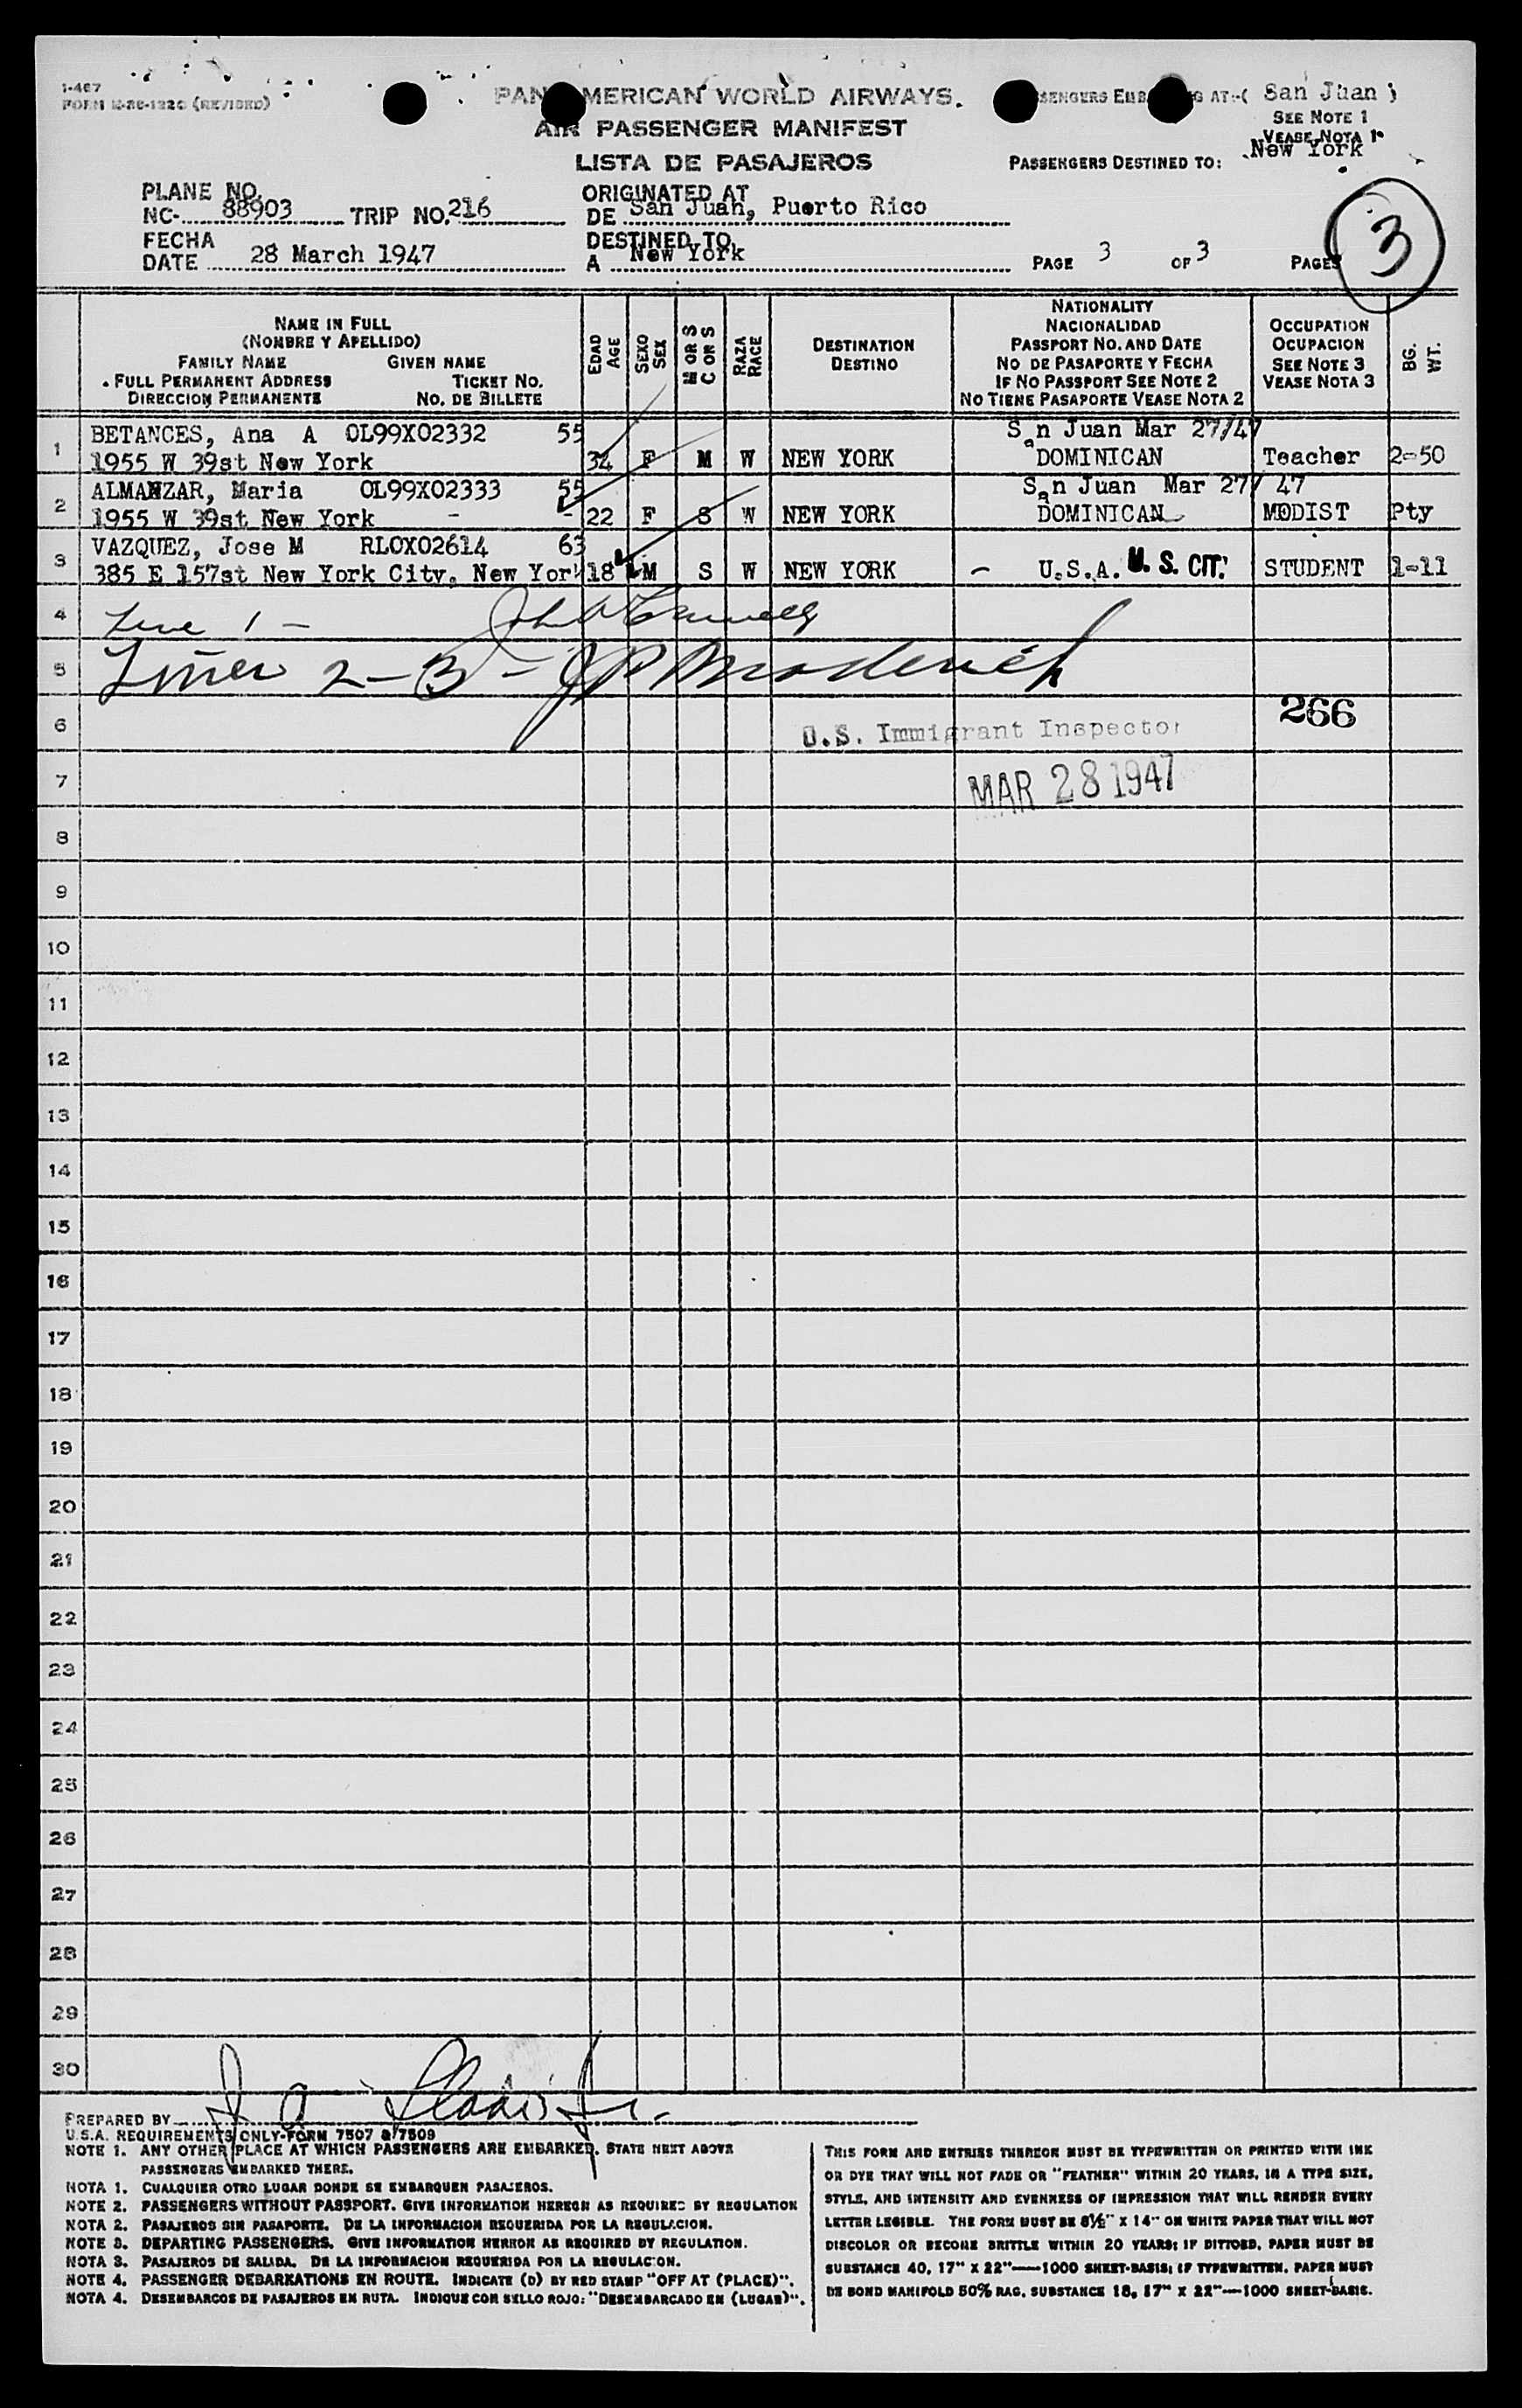 1-467
FORM (REVISED)
PAN AMERICAN WORLD AIRWAYS.
AIR PASSENGER MANIFEST
LISTA DE PASAJEROS
AT:-( San Juan )
SEE NOTE 1
VEASE NOTA 1
PASSENGERS DESTINED TO: New York
PLANE NO.
NC- 88903 TRIP NO. 216
ORIGINATED AT
DE San Juan, Puerto Rico
FECHA
DATE 28 March 1947
DESTINED TO
A New York
PAGE 3 OF 3 PAGES
3
NAME IN FULL
(NOMBRE Y APELLIDO)
FAMILY NAME GIVEN NAME
FULL PERMANENT ADDRESS TICKET NO.
DIRECCION PERMANENTE NO. DE BILLETE
EDAD
AGE
SEXO
SEX
M OR S
C OR S
RAZA
RACE
DESTINATION
DESTINO
NATIONALITY
NACIONALIDAD
PASSPORT NO. AND DATE
NO DE PASAPORTE Y FECHA
IF NO PASSPORT SEE NOTE 2
NO TIENE PASAPORTE VEASE NOTA 2
OCCUPATION
OCUPACION
SEE NOTE 3
VEASE NOTA 3
BG.
WT.
1 BETANCES, Ana A OL99X02332 55 San Juan Mar 27/47
1955 W 39st New York 34 F M W NEW YORK DOMINICAN Teacher 2-50
2 ALMANZAR, Maria OL99X02333 55 San Juan Mar 27/ 47
1955 W 39st New York - - 22 F S W NEW YORK DOMINICAN MODIST Pty
3 VAZQUEZ, Jose M RLOX02614 63
385 E 157st New York City, New York 18 M S W NEW YORK - U.S.A. U. S. CIT. STUDENT 1-11
4 Line 1 -
5 Lines 2-3 -
6 U.S. Immigrant Inspector 266
7 MAR 28 1947
8
9
10
11
12
13
14
15
16
17
18
19
20
21
22
23
24
25
26
27
28
29
30
PREPARED BY
U.S.A. REQUIREMENTS ONLY-FORM 7507 & 7509
NOTE 1. ANY OTHER PLACE AT WHICH PASSENGERS ARE EMBARKED. STATE NEXT ABOVE
PASSENGERS EMBARKED THERE.
NOTA 1. CUALQUIER OTRO LUGAR DONDE SE EMBARQUEN PASAJEROS.
NOTE 2. PASSENGERS WITHOUT PASSPORT. GIVE INFORMATION HEREON AS REQUIRED BY REGULATION
NOTA 2. PASAJEROS SIN PASAPORTE. DE LA INFORMACION REQUERIDA POR LA REGULACION.
NOTE 3. DEPARTING PASSENGERS. GIVE INFORMATION HEREON AS REQUIRED BY REGULATION.
NOTA 3. PASAJEROS DE SALIDA. DE LA INFORMACION REQUERIDA POR LA REGULACION.
NOTE 4. PASSENGER DEBARKATIONS EN ROUTE. INDICATE (D) BY RED STAMP "OFF AT (PLACE)".
NOTA 4. DESEMBARCOS DE PASAJEROS EN RUTA. INDIQUE CON SELLO ROJO: "DESEMBARCADO EN (LUGAR)".
THIS FORM AND ENTRIES THEREON MUST BE TYPEWRITTEN OR PRINTED WITH INK
OR DYE THAT WILL NOT FADE OR "FEATHER" WITHIN 20 YEARS, IN A TYPE SIZE,
STYLE, AND INTENSITY AND EVENNESS OF IMPRESSION THAT WILL RENDER EVERY
LETTER LEGIBLE. THE FORM MUST BE 8½" X 14" ON WHITE PAPER THAT WILL NOT
DISCOLOR OR BECOME BRITTLE WITHIN 20 YEARS; IF DITTOED, PAPER MUST BE
SUBSTANCE 40, 17" X 22"—1000 SHEET-BASIS; IF TYPEWRITTEN, PAPER MUST
BE BOND MANIFOLD 50% RAG, SUBSTANCE 18, 17" X 22"—1000 SHEET-BASIS.